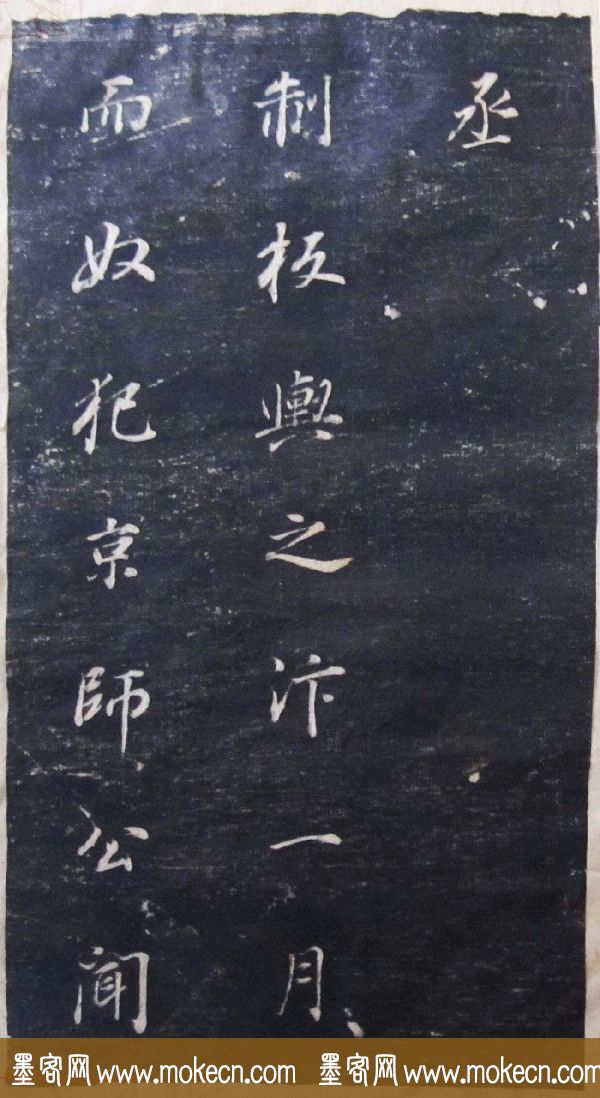 丞
制板輿之汴一月
而奴犯京師公聞
墨客网 www.mokecn.com 墨客网 www.mokecn.com